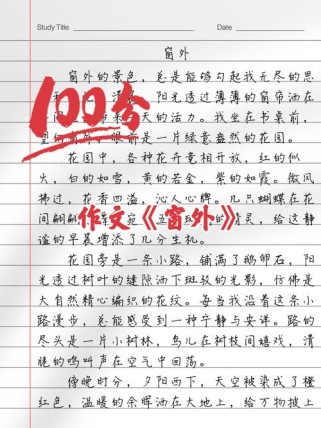 Study Title
Date
窗外
窗外的景色，总是能够勾起我无尽的思
和 阳光透过薄薄的窗帘洒在
天的活力。我坐在书桌前，
眼前是一片绿意盎然的花园。
100分
花园中，各种花卉竞相开放，红的似
火，白的如雪，黄的若金，紫的如霞。微风
拂过，花香四溢，沁人心脾。几只蝴蝶在花
间翩翩 灵，给这静
作文《窗外》
谧的早晨增添了几分生机。
花园旁是一条小路，铺满了鹅卵石，阳
光透过树叶的缝隙洒下斑驳的光影，仿佛是
大自然精心编织的花纹。每当我沿着这条小
路漫步，总能感受到一种宁静与安详。路的
尽头是一片小树林，鸟儿在树枝间嬉戏，清
脆的鸣叫声在空气中回荡。
傍晚时分，夕阳西下，天空被染成了橙
红色，温暖的余晖洒在大地上，给万物披上